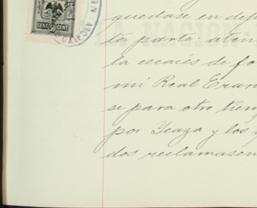 quedase en dep
ta parte aten
la escasés de fo
mi Real Eran
se para otro tiem
por Icaza y los
dos reclamason